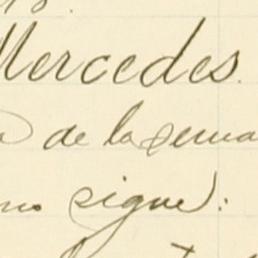 Mercedes.
de la sema
sigue: